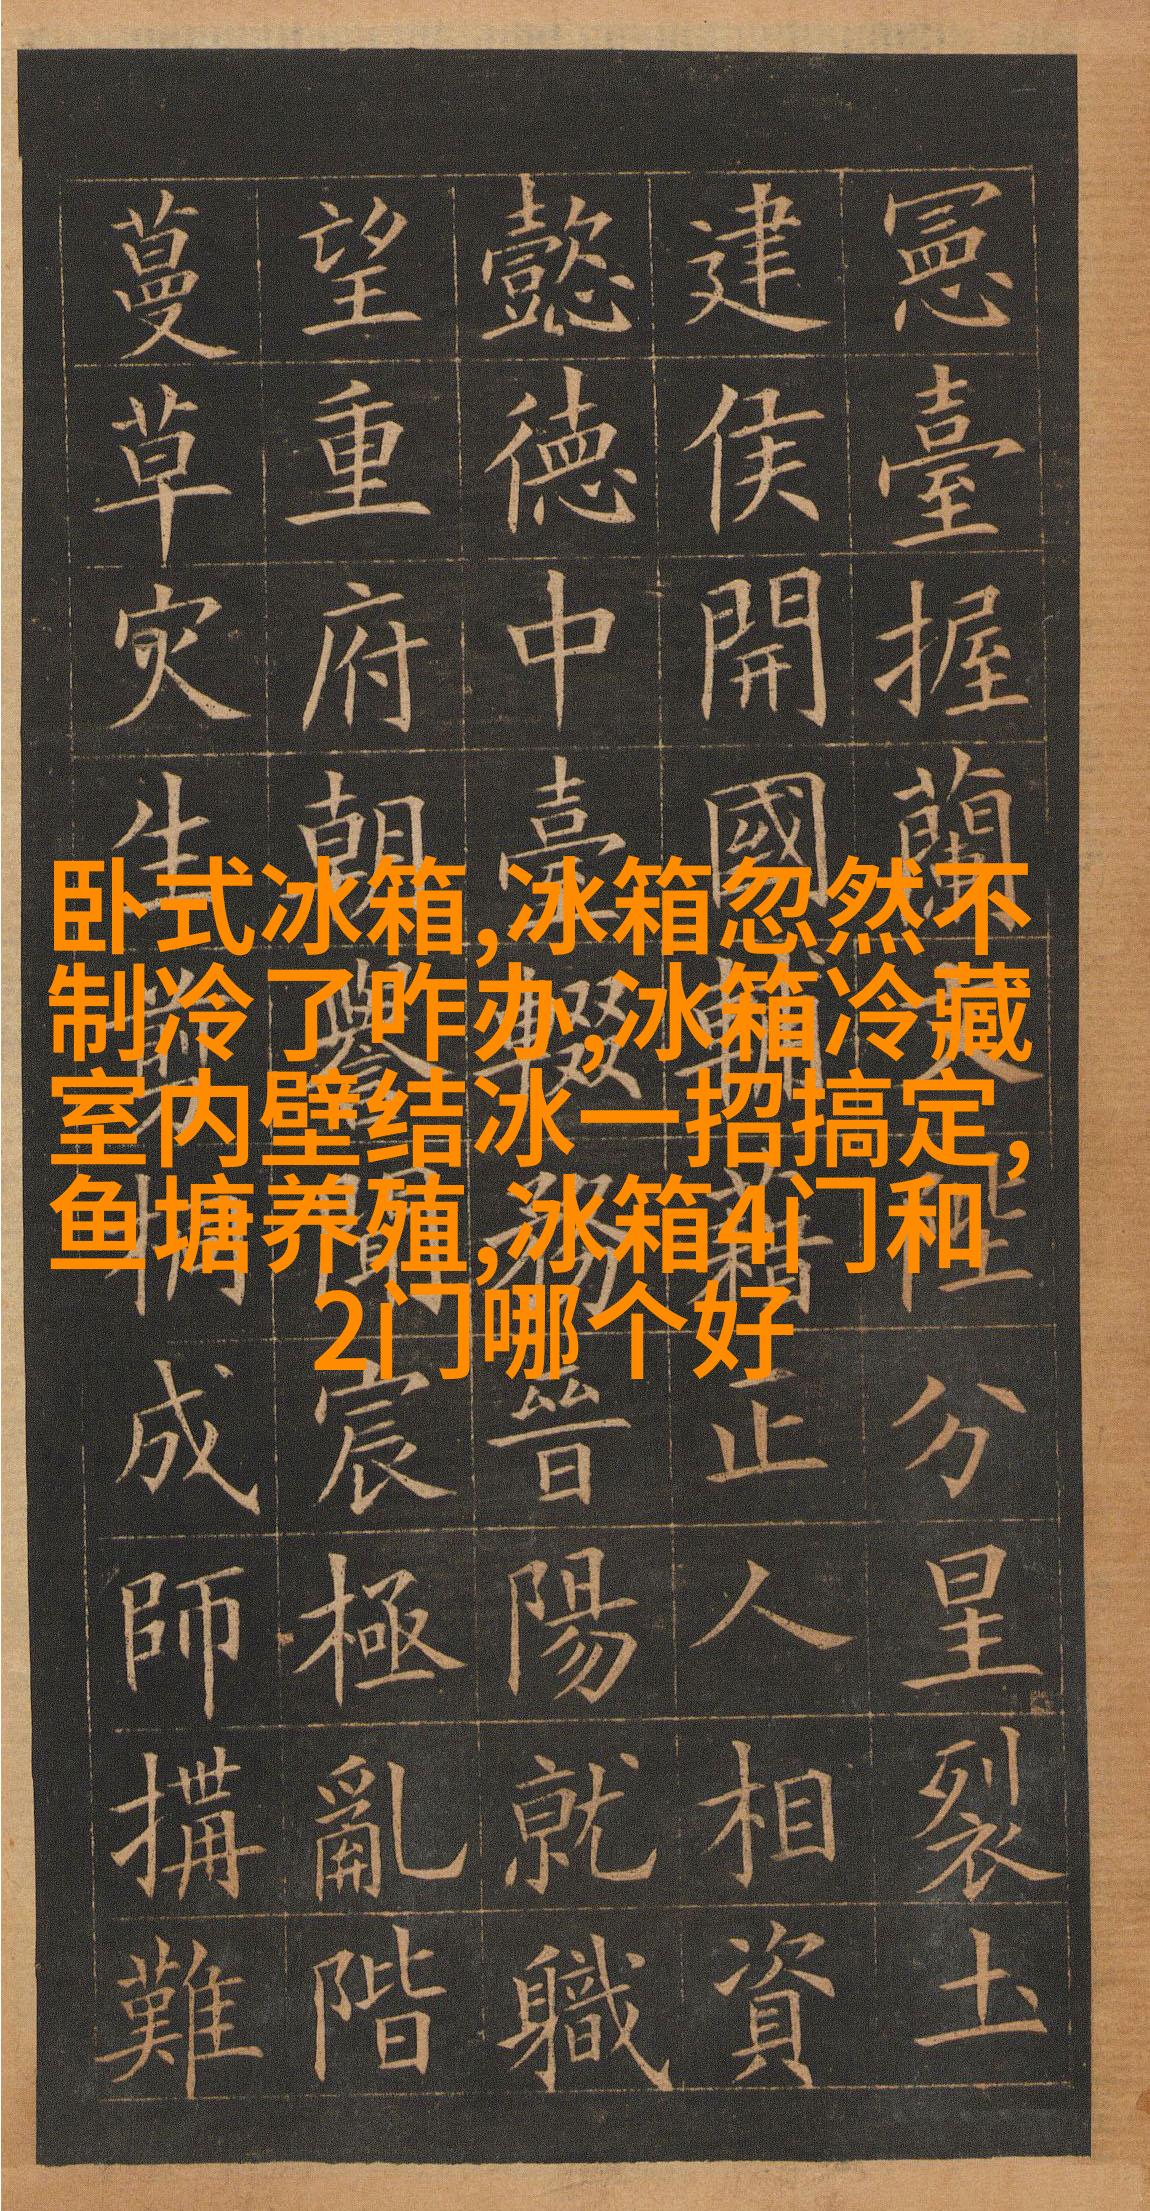 卧式冰箱,冰箱忽然不
制冷了咋办,冰箱冷藏
室内壁结冰一招搞定,
鱼塘养殖,冰箱4门和
2门哪个好
憲臺握蘭文陛分星裂土
建侯開國輔藉正人相資
懿德中臺輟務晉陽就職
望重府朝譽聞宸極亂階
蔓草災生剪桐成師搆難